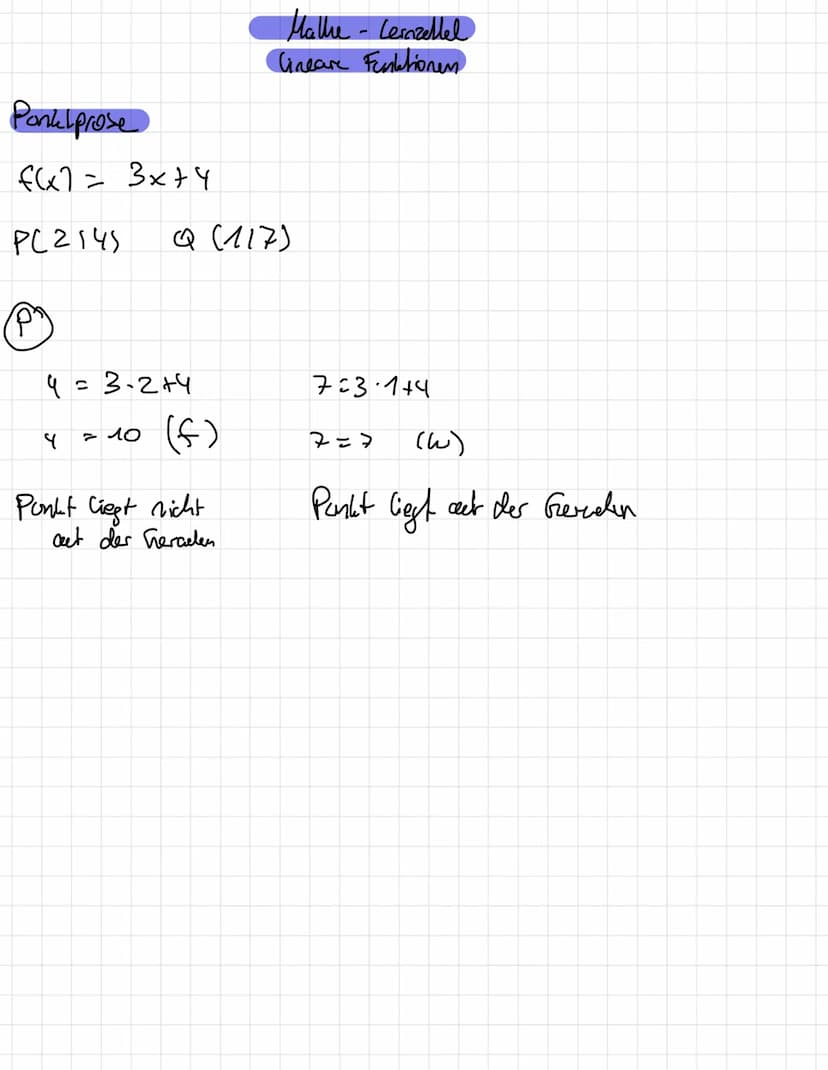 Mathe - Lernzettel
Lineare Funktionen
Punktprobe
f(x) = 3x+4
P(2|4) Q (1|7)
P
4 = 3·2+4 7=3·1+4
4 = 10 (f) 7=7 (w)
Punkt liegt nicht Punkt liegt auf der Geraden
auf der Geraden